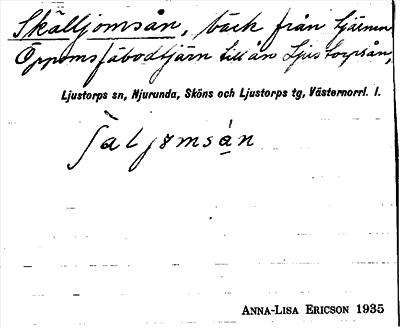 Skälljomsån, bäck från tjärnen
Öppoms fäbodtjärn till ån Ljustorpsån,
Ljustorps sn, Njurunda, Sköns och Ljustorps tg, Västernorrl. l.
ANNA-LISA ERICSON 1935